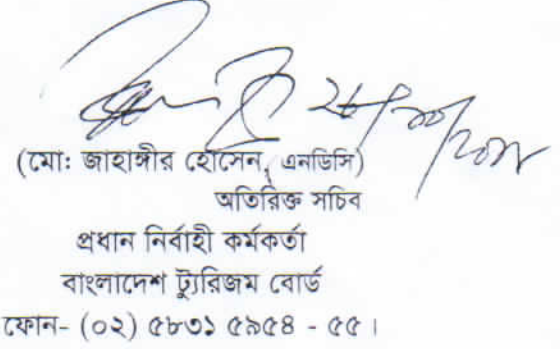 (মোঃ জাহাঙ্গীর হোসেন, এনডিসি)
অতিরিক্ত সচিব
প্রধান নির্বাহী কর্মকর্তা
বাংলাদেশ ট্যুরিজম বোর্ড
ফোন- (০২) ৫৮৩১ ৫৯৫৪ - ৫৫।